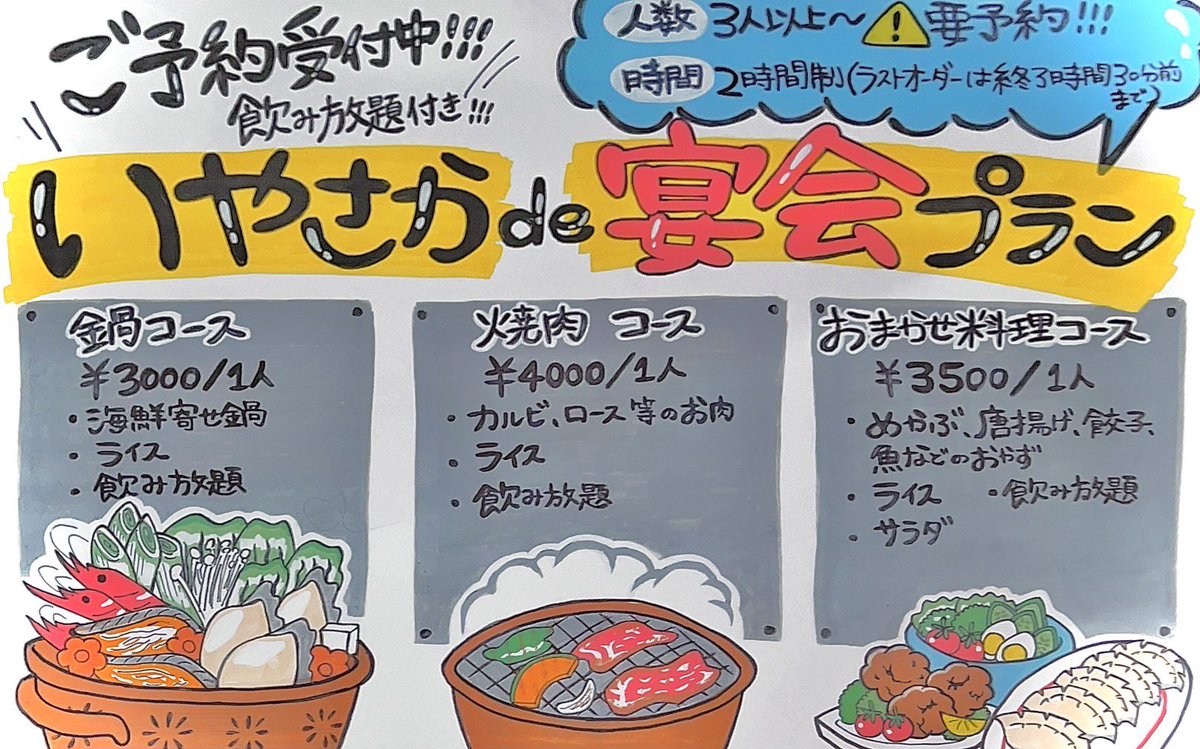 ご予約受付中!!!
飲み放題付き!!!
人数 3人以上〜 ! 要予約!!!
時間 2時間制(ラストオーダーは終了時間30分前まで)
いやさか de 宴会プラン
鍋コース
¥3000/1人
・海鮮寄せ鍋
・ライス
・飲み放題
焼肉 コース
¥4000/1人
・カルビ、ロース等のお肉
・ライス
・飲み放題
おまかせ料理コース
¥3500/1人
・めかぶ、唐揚げ、餃子、
魚などのおかず
・ライス ・飲み放題
・サラダ